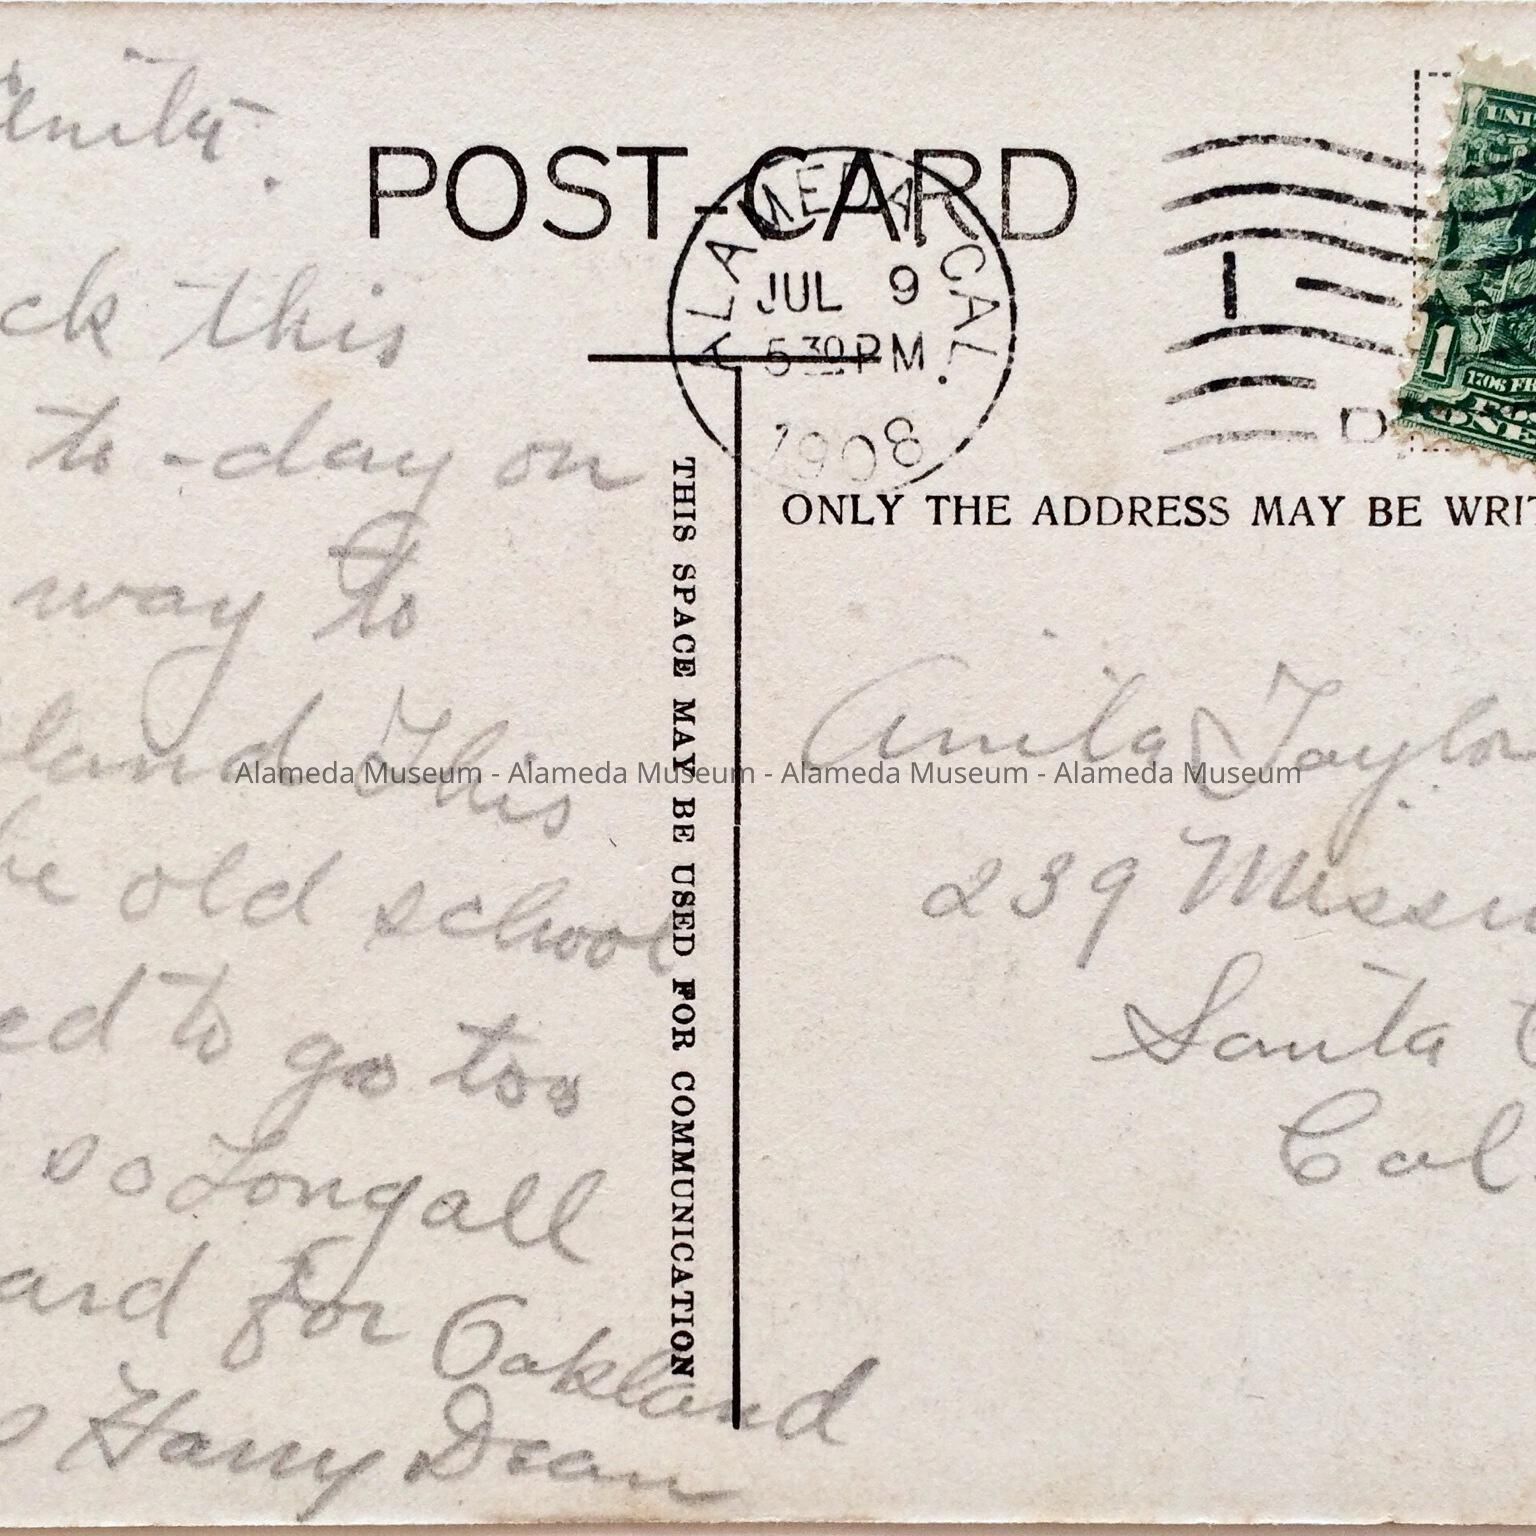 Anita.
ck this
to-day on
way to
land This
he old school
ed to go too
so Long all
ard for Oakland
Harry Dean
POST-CARD
ALAMEDA, CAL.
JUL 9
5 30 PM
1908
1
D
UNI
1
1706 FR
ONE
THIS SPACE MAY BE USED FOR COMMUNICATION
ONLY THE ADDRESS MAY BE WRIT
Anita Taylor
239 Missi
Santa C
Cal
Alameda Museum - Alameda Museum - Alameda Museum - Alameda Museum